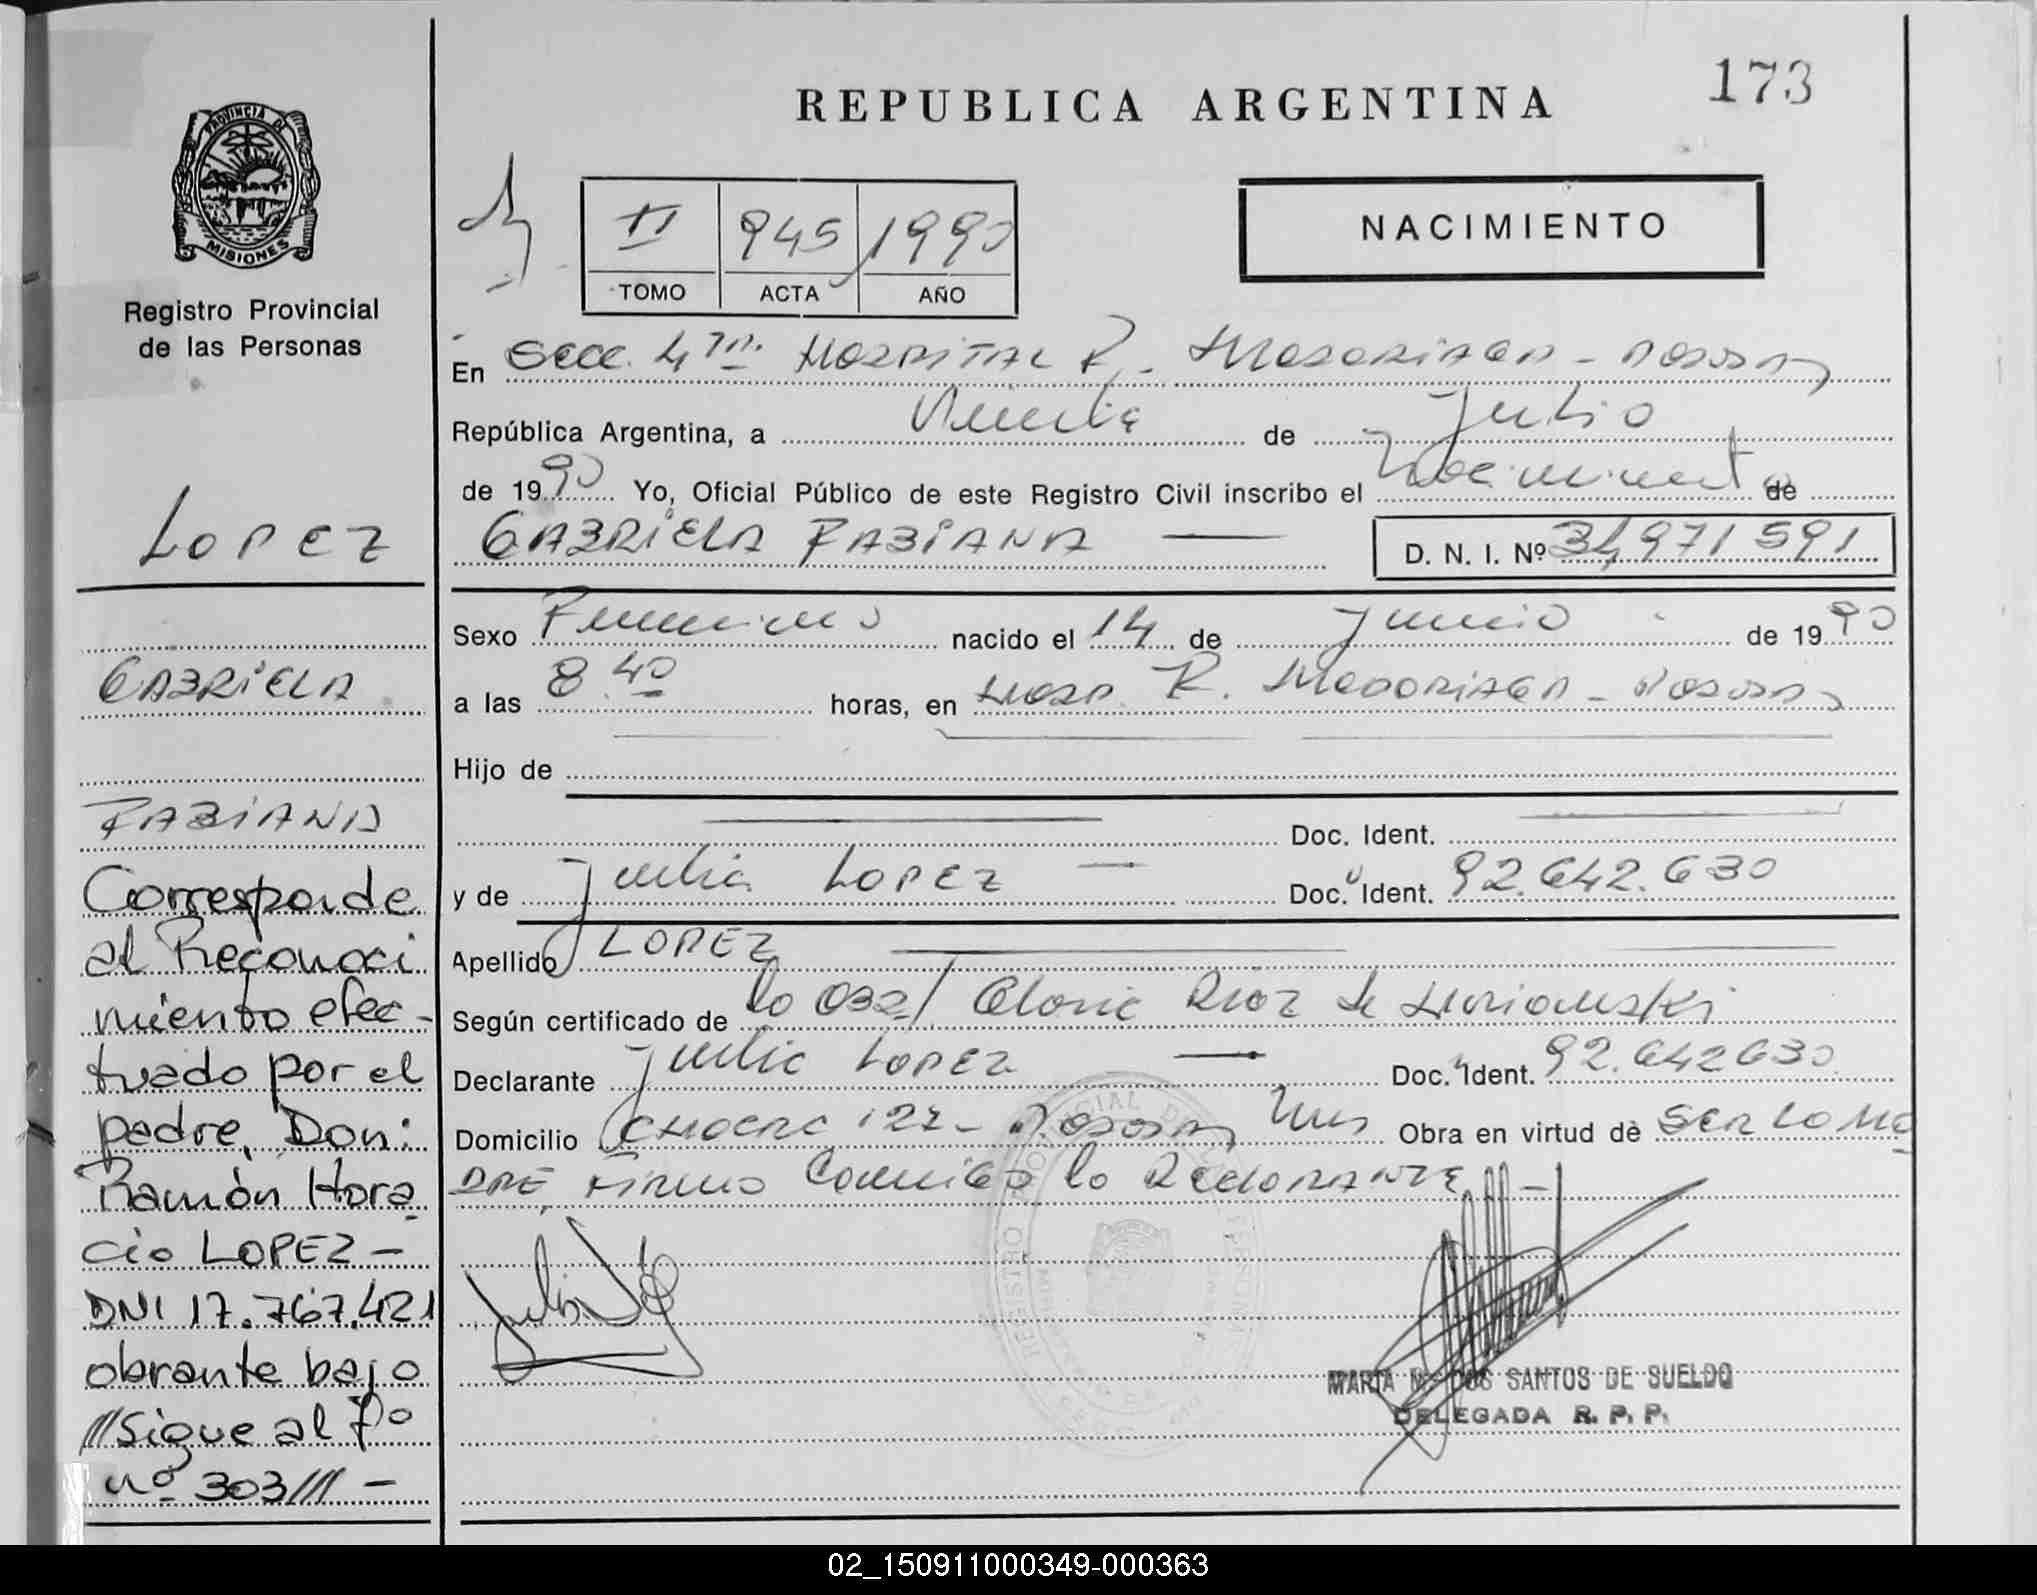 173
REPUBLICA ARGENTINA
PROVINCIA DE
MISIONES
Registro Provincial
de las Personas
II 945 1990
TOMO ACTA AÑO
NACIMIENTO
En Secc. 4ta. HOSPITAL R. MADARIAGA - POSADAS
República Argentina, a Veinte de Julio
de 1990 Yo, Oficial Público de este Registro Civil inscribo el Nacimiento de
GABRIELA FABIANA
D. N. I. Nº 34971591
Sexo Femenino nacido el 14 de Junio de 1990
a las 8.40 horas, en HOSP. R. MADARIAGA - POSADAS
Hijo de
Doc. Ident.
y de Julia LOPEZ Doc. Ident. 92.642.630
Apellido LOPEZ
Según certificado de la Obs/ Gloria de
Declarante Julia LOPEZ Doc. Ident. 92.642630
Domicilio 122 - POSADAS Mnes Obra en virtud de SER LA MA
DRE FIRMA Conmigo la DECLARANTE -
MARIA DOS SANTOS DE SUELDO
DELEGADA R. P. P.
LOPEZ
GABRIELA
FABIANA
Corresponde
al Reconoci
miento efec-
tuado por el
padre, Don:
Ramón Hora
cio LOPEZ -
DNI 17.767.421
obrante bajo
///Sigue al Fº
nº 303/// -
02_150911000349-000363